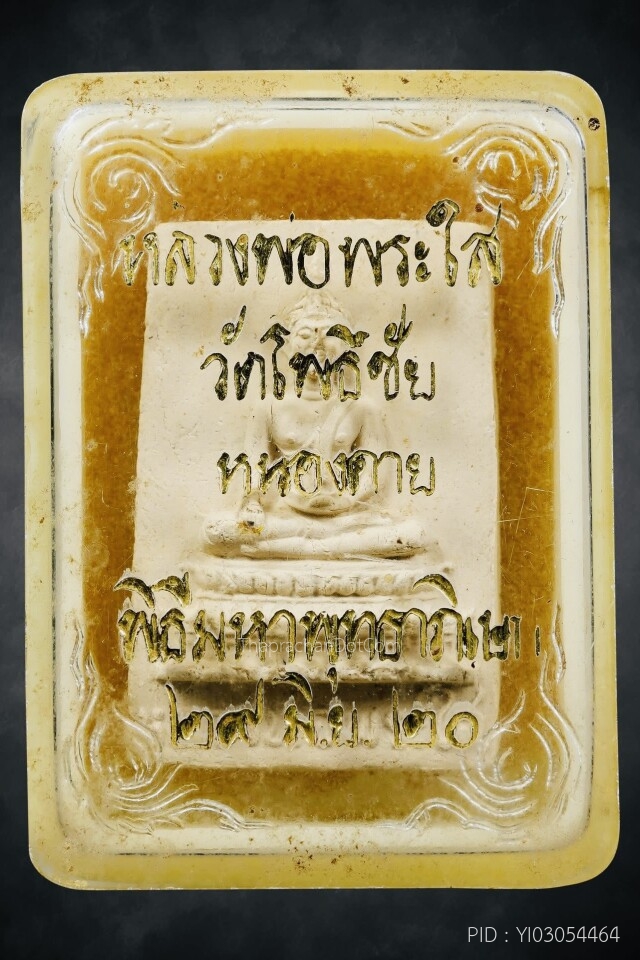 หลวงพ่อพระใส
วัดโพธิ์ชัย
หนองคาย
พิธีมหาพุทธาภิเษก
ThaprachanDotCom
๒๙ มิ.ย. ๒๐
PID : YI03054464